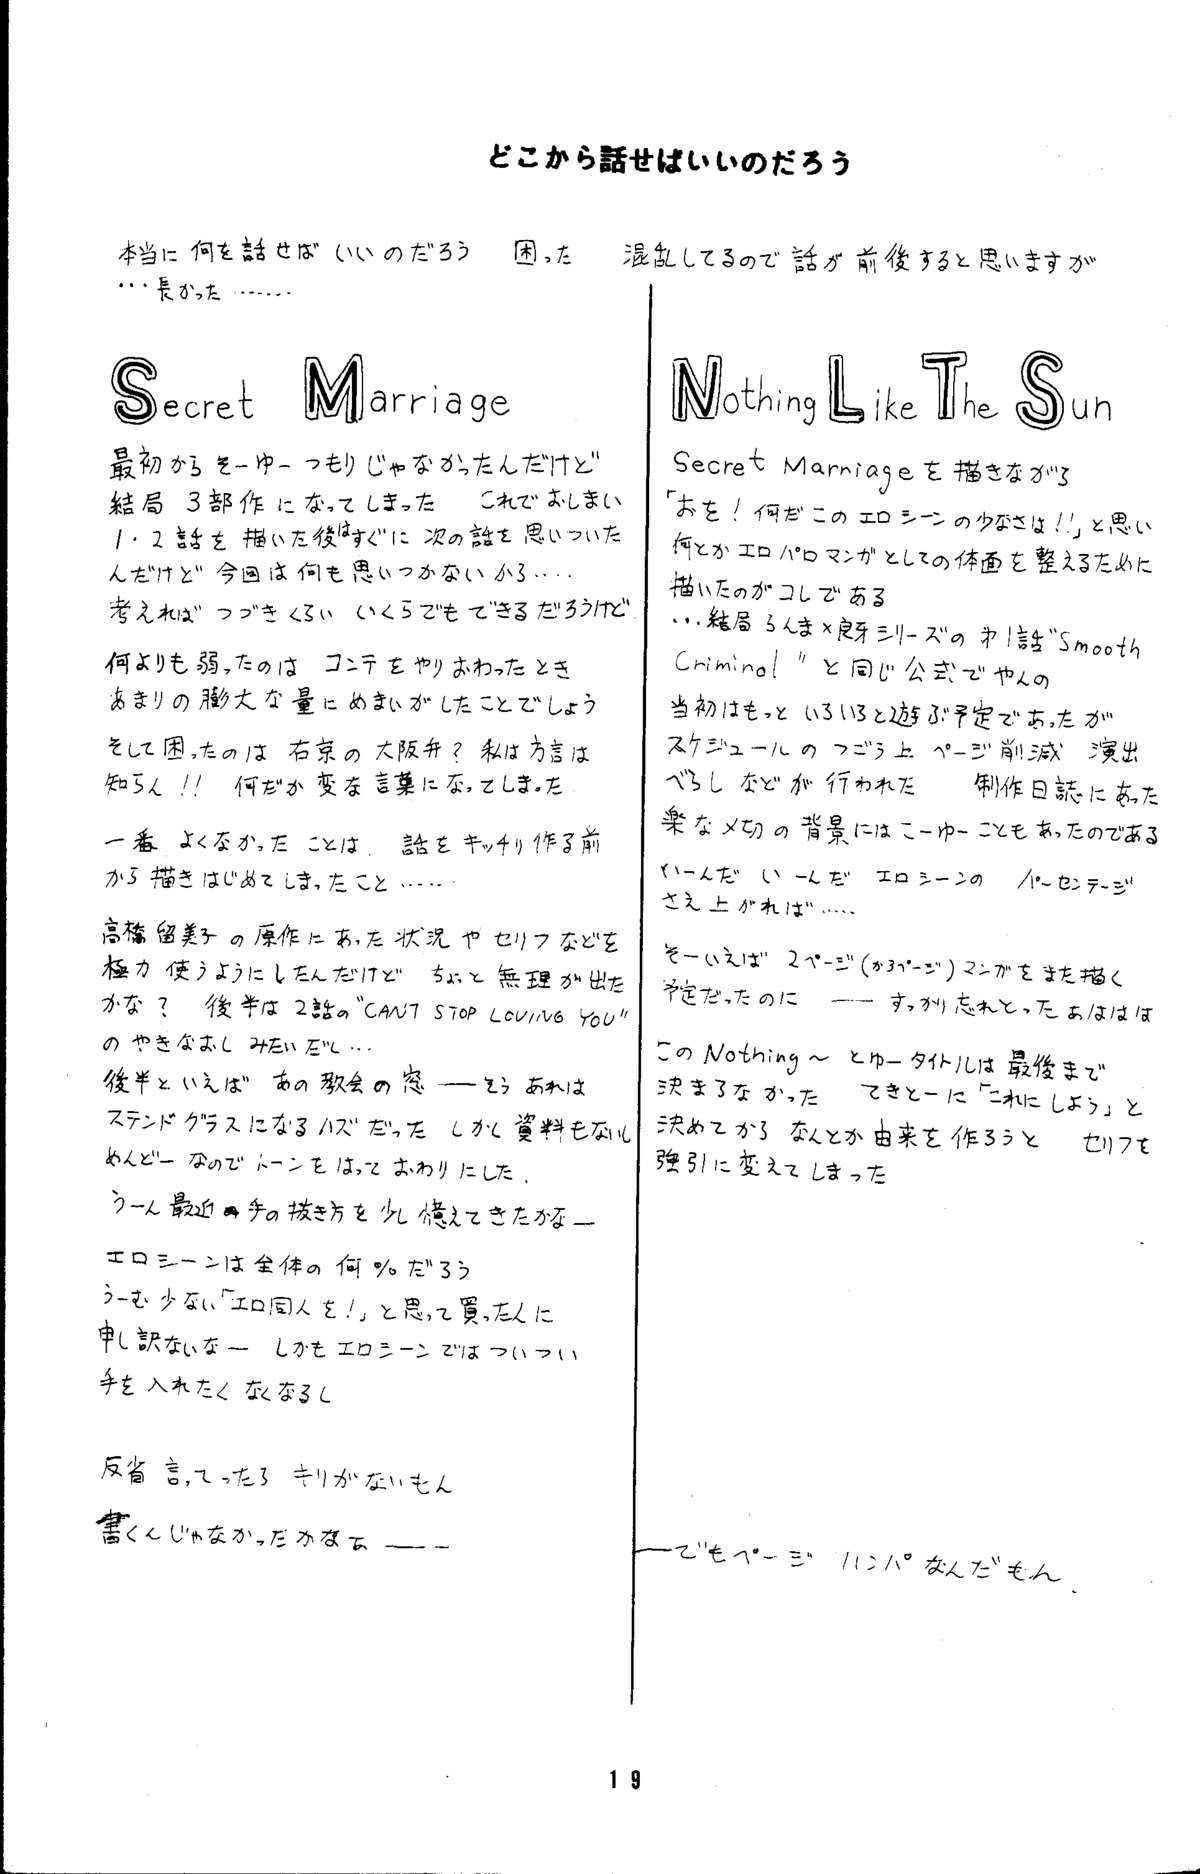 どこから話せばいいのだろう
本当に 何を話せば いいのだろう 困った 混乱してるので 話が 前後すると思いますが
…長かった……
Secret Marriage
最初から そーゆー つもりじゃなかったんだけど
結局 3部作になってしまった これでおしまい
1・2話を 描いた後はすぐに 次の話を 思いついた
んだけど 今回は 何も思いつかないから‥‥
考えれば つづきくらい いくらでもできるだろうけど
何よりも弱ったのは コンテをやりおわったとき
あまりの膨大な量に めまいがしたことでしょう
そして困ったのは 右京の大阪弁? 私は方言は
知らん!! 何だか変な言葉になってしまった
一番 よくなかった ことは、話を キッチリ作る前
から描きはじめてしまったこと……
高橋留美子の原作にあった状況や セリフなどを
極力 使うようにしたんだけど ちょっと無理が出た
かな? 後半は 2話の“CAN'T STOP LOVING YOU”
の やきなおし みたいだし…
後半といえば あの教会の窓 ── そう あれは
ステンドグラスになるハズだった しかし資料もないし
めんどーなので トーンをはって おわりにした.
うーん 最近 手の抜き方を 少し憶えてきたかなー
エロシーンは全体の 何%だろう
うーむ 少ない「エロ同人を!」と思って買った人に
申し訳ないなー しかもエロシーンではついつい
手を入れたく なくなるし
反省 言ってったら キリがないもん
書くんじゃなかったかなぁ ──
Nothing Like The Sun
Secret Marriageを描きながら
「おを!何だこのエロシーンの少なさは!!」と思い
何とかエロパロマンガとしての体面を整えるために
描いたのが コレである
…結局らんま×良牙シリーズの 第1話“Smooth
Criminal”と同じ公式でやんの
当初はもっと いろいろと遊ぶ予定であったが
スケジュールの つごう上 ページ削減 演出
べらし などが 行われた 制作日誌にあった
楽な〆切の背景にはこーゆーこともあったのである
いーんだ いーんだ エロシーンの パーセンテージ
さえ上がれば……
そーいえば 2ページ(から3ページ)マンガをまた描く
予定だったのに ── すっかり忘れとった あははは
このNothing〜 とゆータイトルは 最後まで
決まらなかった てきとーに「これにしよう」と
決めてから なんとか由来を作ろうと セリフを
強引に変えてしまった
──でもページ ハンパなんだもん.
19